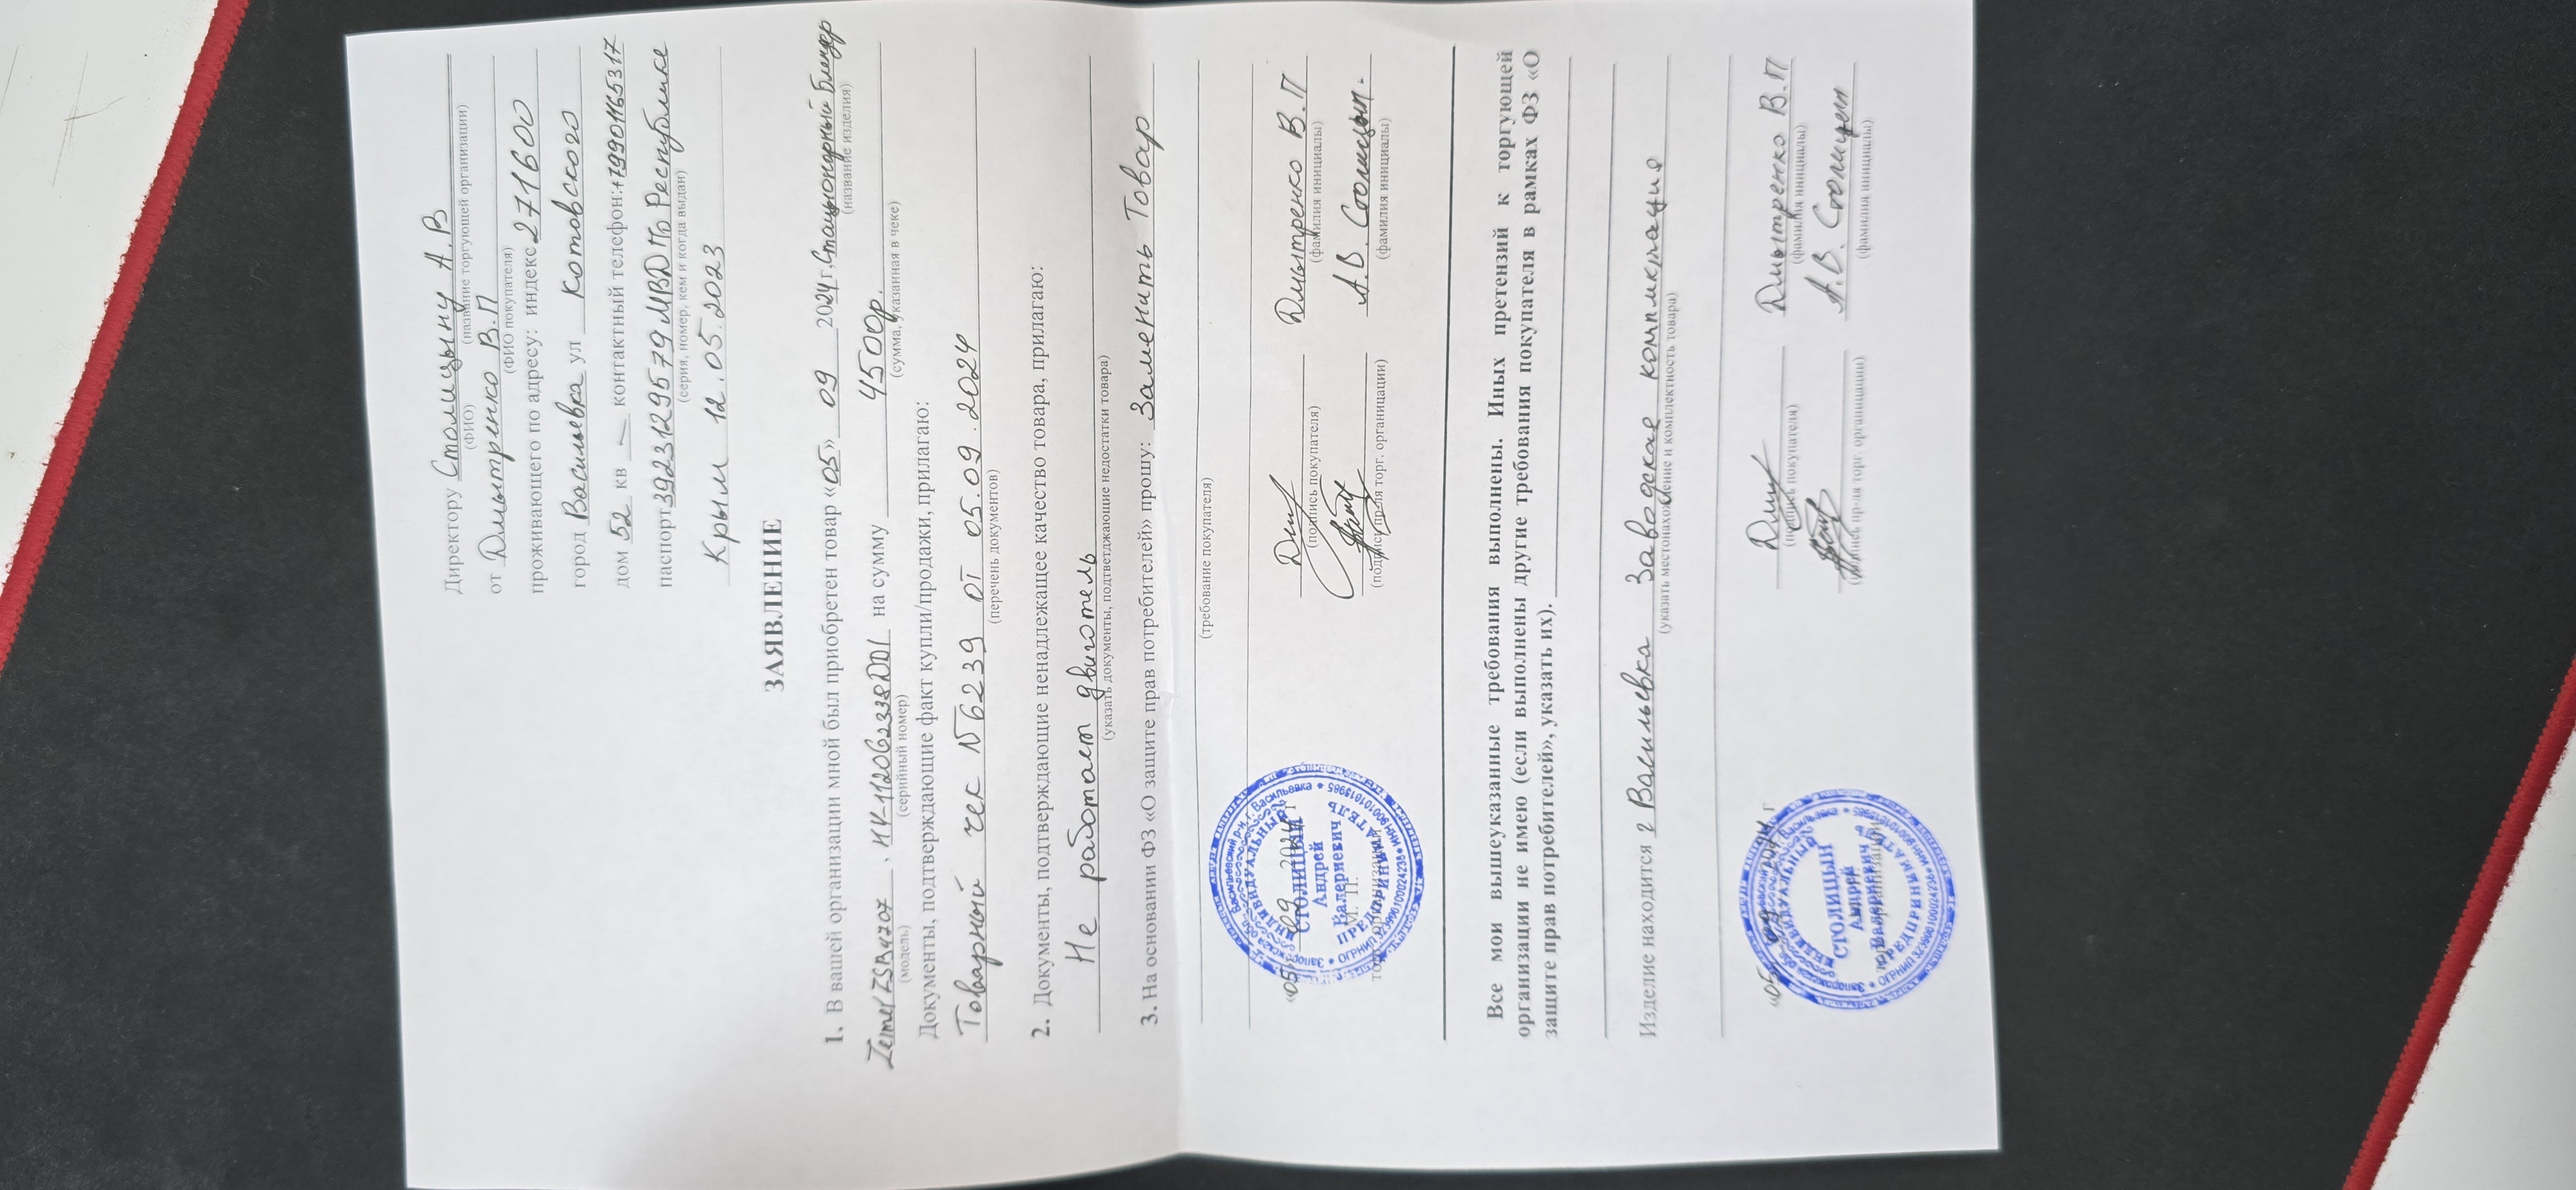 Директору Столицыну А.В
(ФИО) (название торгующей организации)
от Дмытренко В.П
(ФИО покупателя)
проживающего по адресу: индекс 271600
город Васильевка ул Котовского
дом 52 кв — контактный телефон: +79901165317
паспорт 3923129579 МВД По Республике
(серия, номер, кем и когда выдан)
Крым 12.05.2023
ЗАЯВЛЕНИЕ
1. В вашей организации мной был приобретен товар «05» 09 2024г, Стационарный блендер
(название изделия)
Zemel ZSB4707, HY-1120G2338DD1 на сумму 4500р.
(модель) (серийный номер) (сумма, указанная в чеке)
Документы, подтверждающие факт купли/продажи, прилагаю:
Товарный чек №6239 от 05.09.2024
(перечень документов)
2. Документы, подтверждающие ненадлежащее качество товара, прилагаю:
Не работает двиготель
(указать документы, подтветджающие недостатки товара)
3. На основании ФЗ «О защите прав потребителей» прошу: Заменить Товар
(требование покупателя)
Дмытренко В.П
(подпись покупателя) (фамилия инициалы)
«05» 09 2024 г А.В. Столицын.
М. П. (подпись пр-ля торг. организации) (фамилия инициалы)
торг. организации
ИНДИВИДУАЛЬНЫЙ
СТОЛИЦЫН
Андрей
Валериевич
ПРЕДПРИНИМАТЕЛЬ
Васильевский р-н, г. Васильевка
ИНН 900101013985
ОГРНИП 323900100024236
Все мои вышеуказанные требования выполнены. Иных претензий к торгующей
организации не имею (если выполнены другие требования покупателя в рамках ФЗ «О
защите прав потребителей», указать их).
Изделие находится г Васильевка Заводская комплктация
(указать местонахождение и комплектность товара)
Дмытренко В.П
(подпись покупателя) (фамилия инициалы)
«05» 09 2024 г А.В. Столицын
(подпись пр-ля торг. организации) (фамилия инициалы)
торг. организации
ИНДИВИДУАЛЬНЫЙ
СТОЛИЦЫН
Андрей
Валериевич
ПРЕДПРИНИМАТЕЛЬ
ИНН 900101013985
ОГРНИП 323900100024236